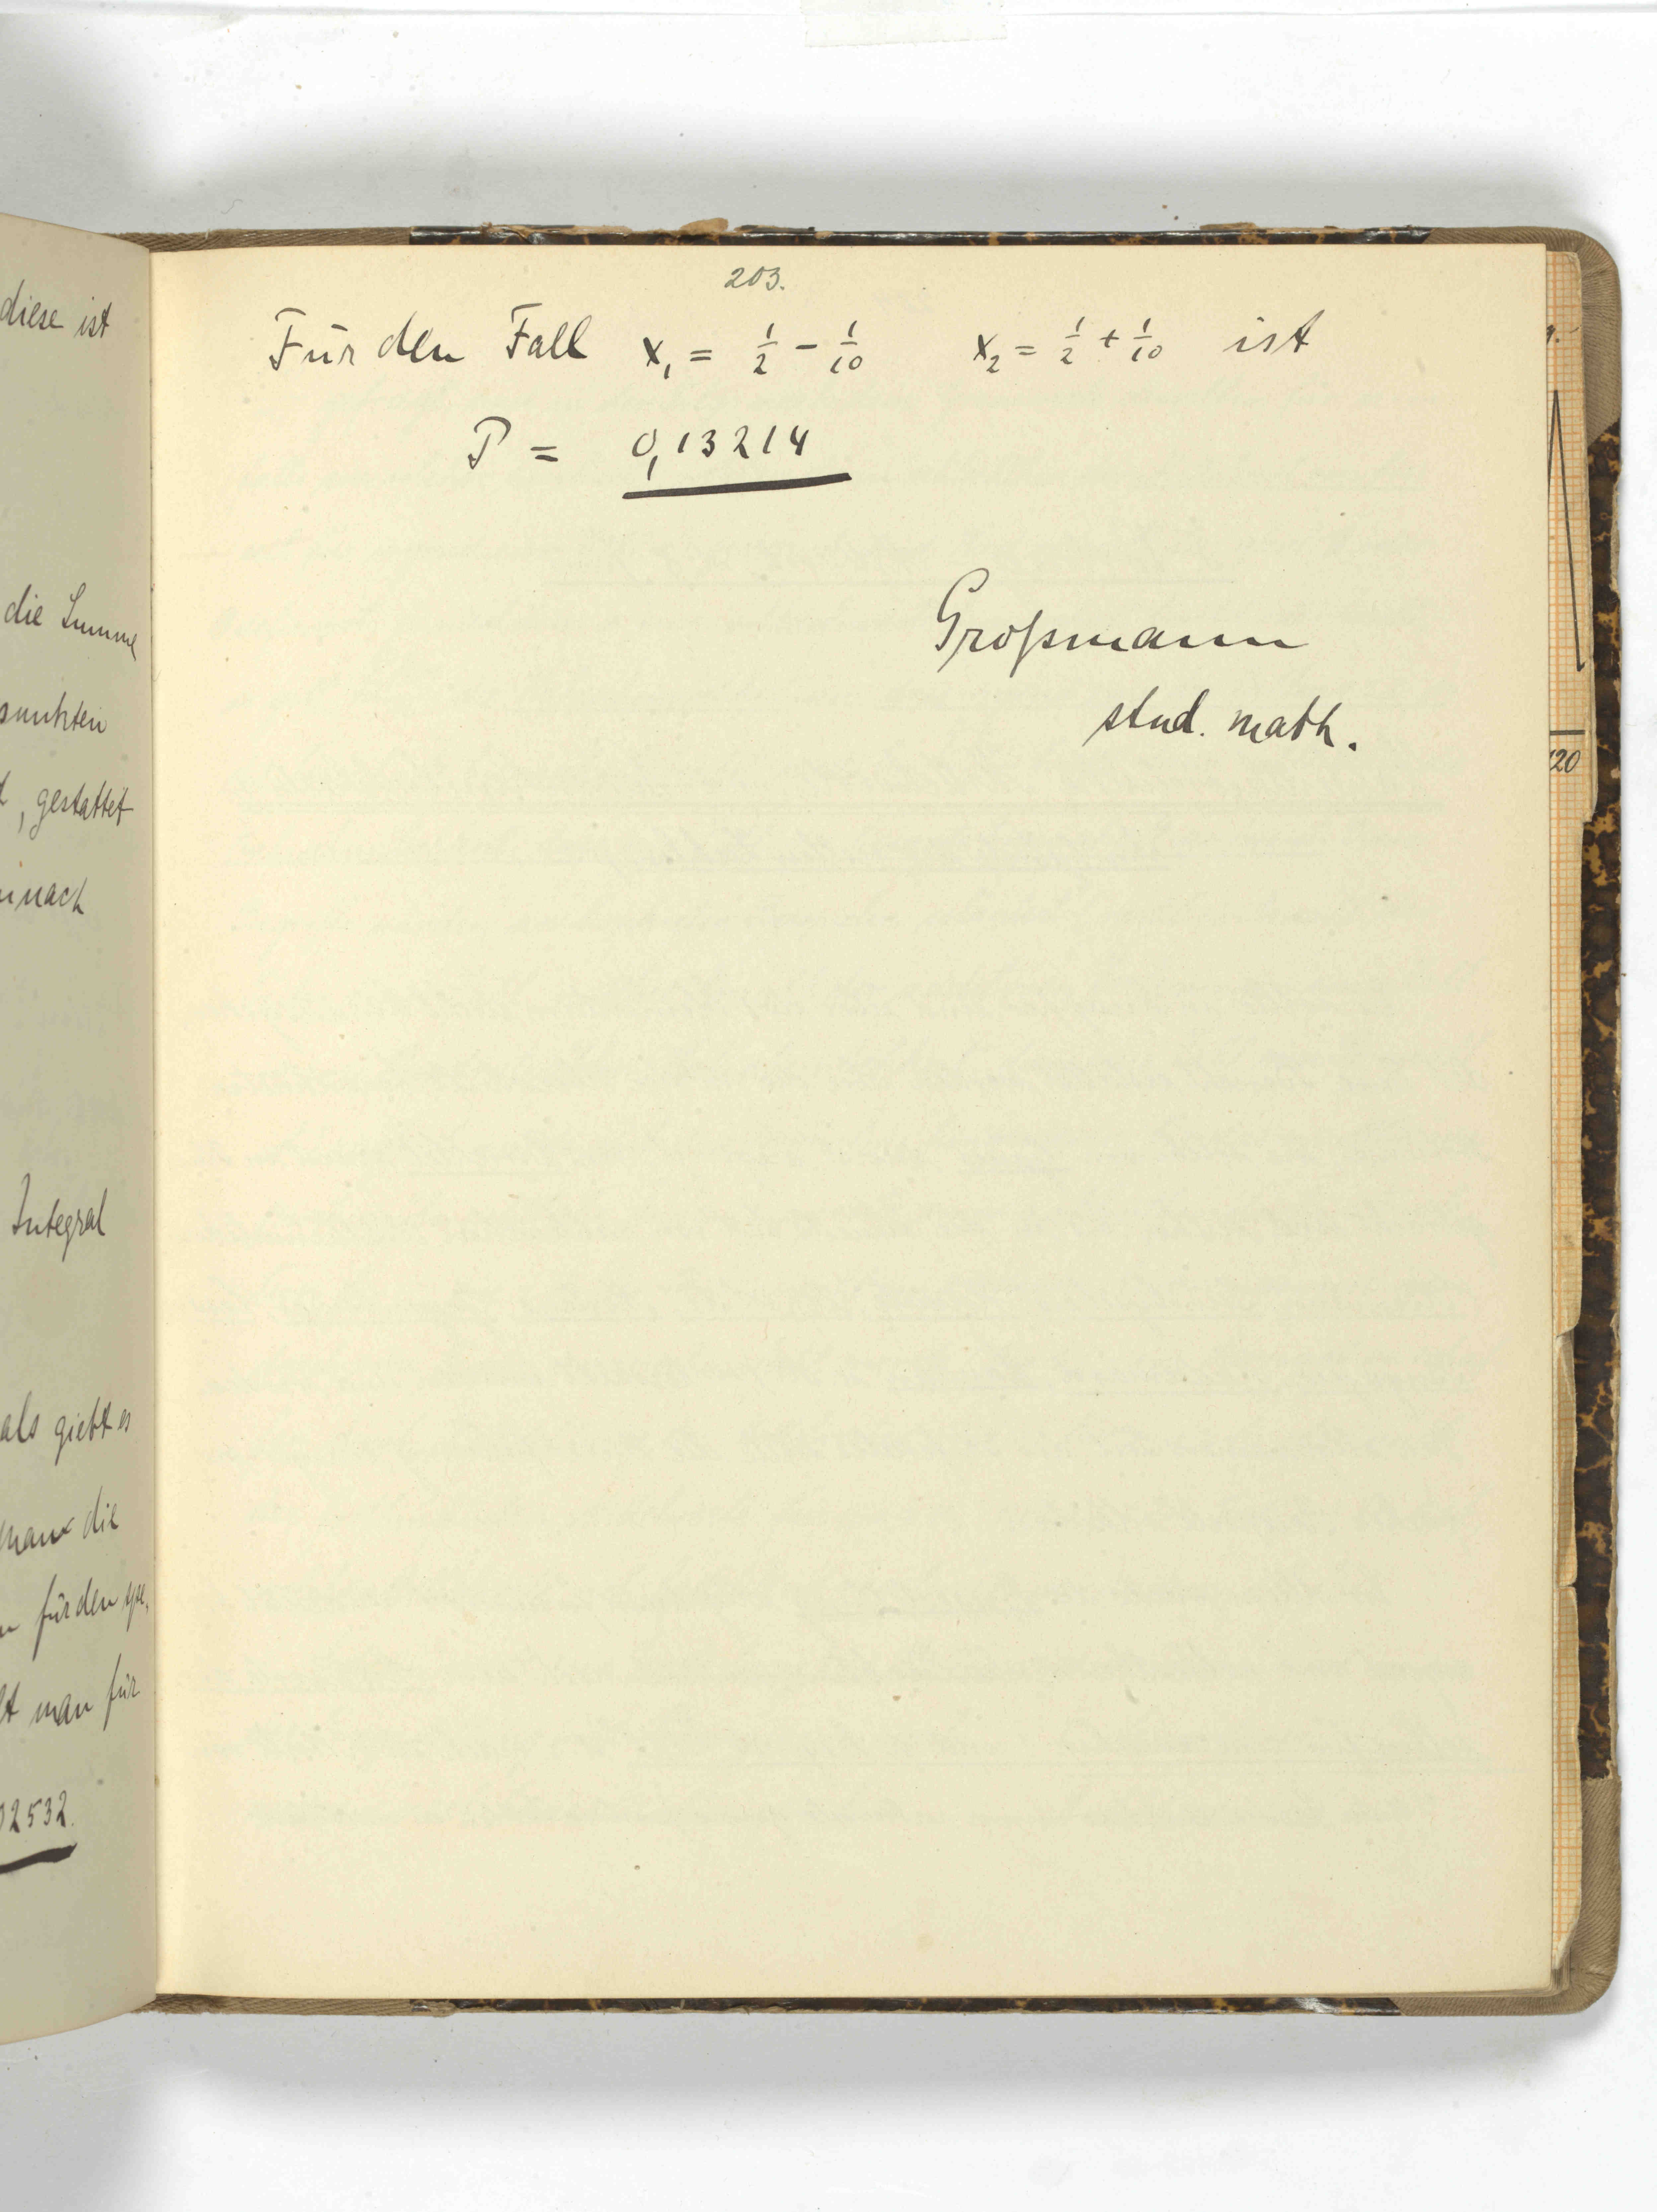 diese ist
die Summe
punkten
, gestattet
nach
Integral
als giebt es
man die
für den spe.
man für
02532.
203.
Für den Fall x₁ = 1/2 - 1/10 x₂ = 1/2 + 1/10 ist
P = 0,13214
Großmann
stud. math.
120